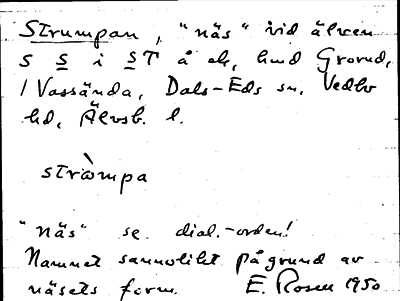 Strumpan, "näs" vid älven
S S i ST å ek, hmd Grorud,
1 Vassända, Dals-Eds sn, Vedbo
hd, Älvsb. l.
stròmpa
"näs" se dial.-orden!
Namnet sannolikt på grund av
näsets form. E. Rosen 1950